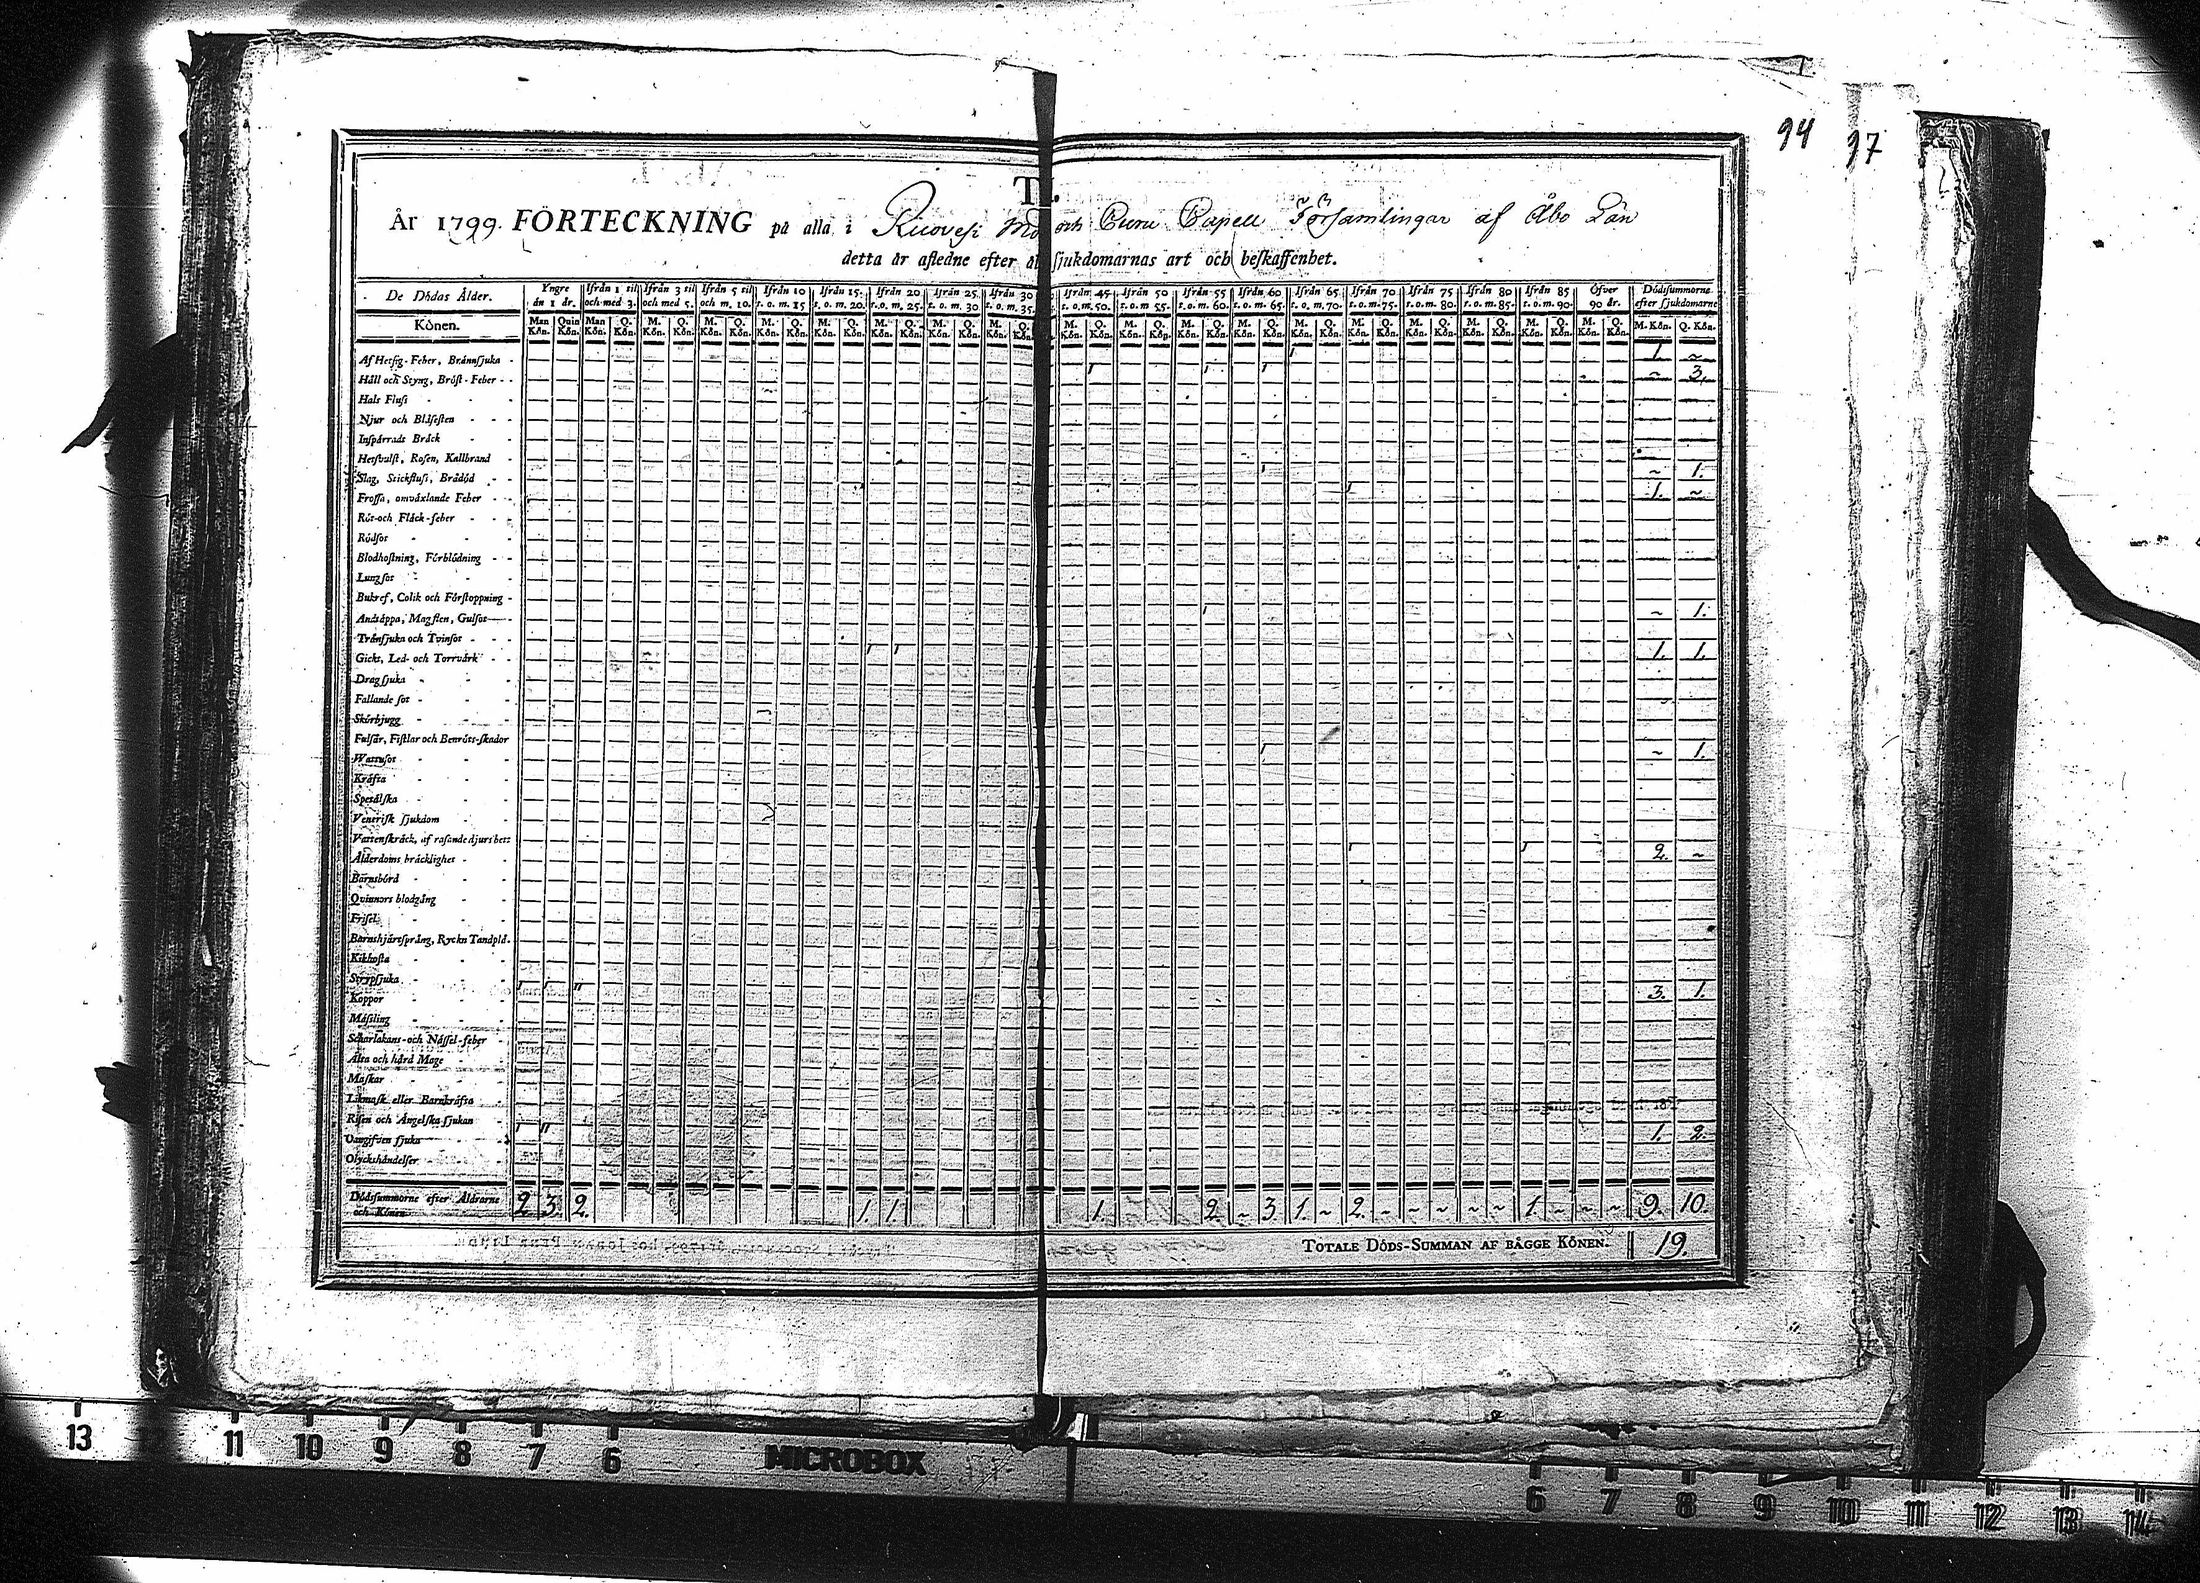 94 97
T
År 1799. FÖRTECKNING på alla i Ruovesi Mo och Curu Capell Församlingar af Åbo Län
detta år afledne efter ſjukdomarnas art och beſkaffenhet.
De Dödas Ålder. Yngre än 1 år. Ifrån 1 til och med 3. Ifrån 3 til och med 5. Ifrån 5 til och m. 10. Ifrån 10 t. o. m. 15 Ifrån 15. t. o. m. 20. Ifrån 20 t. o. m. 25. Ifrån 25. t. o. m. 30 Ifrån 30 t. o. m. 35. Ifrån 45 t. o. m. 50. Ifrån 50 t. o. m. 55. Ifrån 55 t. o. m. 60. Ifrån 60 t. o. m. 65. Ifrån 65 t. o. m. 70. Ifrån 70 t. o. m. 75. Ifrån 75 t. o. m. 80. Ifrån 80 t. o. m. 85. Ifrån 85 t. o. m. 90. Öfver 90 år. Dödsſummorne efter ſjukdomarne
Könen. Man Kön. Quin Kön. Man Kön. Q. Kön. M. Kön. Q. Kön. M. Kön. Q. Kön. M. Kön. Q. Kön. M. Kön. Q. Kön. M. Kön. Q. Kön. M. Kön. Q. Kön. M. Kön. Q. Kön. M. Kön. Q. Kön. M. Kön. Q. Kön. M. Kön. Q. Kön. M. Kön. Q. Kön. M. Kön. Q. Kön. M. Kön. Q. Kön. M. Kön. Q. Kön. M. Kön. Q. Kön. M. Kön. Q. Kön. M. Kön. Q. Kön. M. Kön. Q. Kön.
Af Hetſig-Feber, Brännſjuka 1 1. ~
Håll och Styng, Bröſt-Feber 1 1 1 ~ 3.
Hals Fluſs
Njur och Blåſeſten
Inſpärradt Bråck
Hetſvulſt, Roſen, Kallbrand
Slag, Stickfluſs, Brådöd 1 ~ 1.
Froſſa, omväxlande Feber 1 1. ~
Röt-och Fläck-feber
Rödſot
Blodhoſtning, Förblödning
Lungſot
Bukref, Colik och Förſtoppning
Andtäppa, Magſten, Gulſot 1 ~ 1.
Trånſjuka och Tvinſot
Gickt, Led- och Torrvärk 1 1 1. 1.
Dragſjuka
Fallande ſot
Skörbjugg
Fulſår, Fiſtlar och Benröts-ſkador
Wattuſot 1 ~ 1.
Kräfta
Spetälſka
Veneriſk ſjukdom
Vattenſkräck, af raſande djurs bett
Ålderdoms bräcklighet 1 1 2. ~
Barnsbörd
Qvinnors blodgång
Friſel
Barnshjärtſprång, Ryckn Tandplå.
Kikhoſta
Strypſjuka
Koppor 1 1 11 3. 1.
Mäſsling
Scharlakans-och Näſſel-feber
Älta och hård Mage
Maſkar
Likmaſk eller Barnkräfta
Riſen och Ängelſka ſjukan
Oangifven ſjuka 1 11 1. 2.
Olyckshändelſer
Dödsſummorne efter Åldrarne och Könen 2 3. 2. 1. 1. 1. 2. ~ 3. 1. ~ 2. ~ ~ ~ ~ ~ 1. ~ ~ ~ 9. 10.
TOTALE DÖDS-SUMMAN AF BÅGGE KÖNEN. 19.
13 11 10 9 8 7 6 MICROBOX 6 7 8 9 10 11 12 13 14